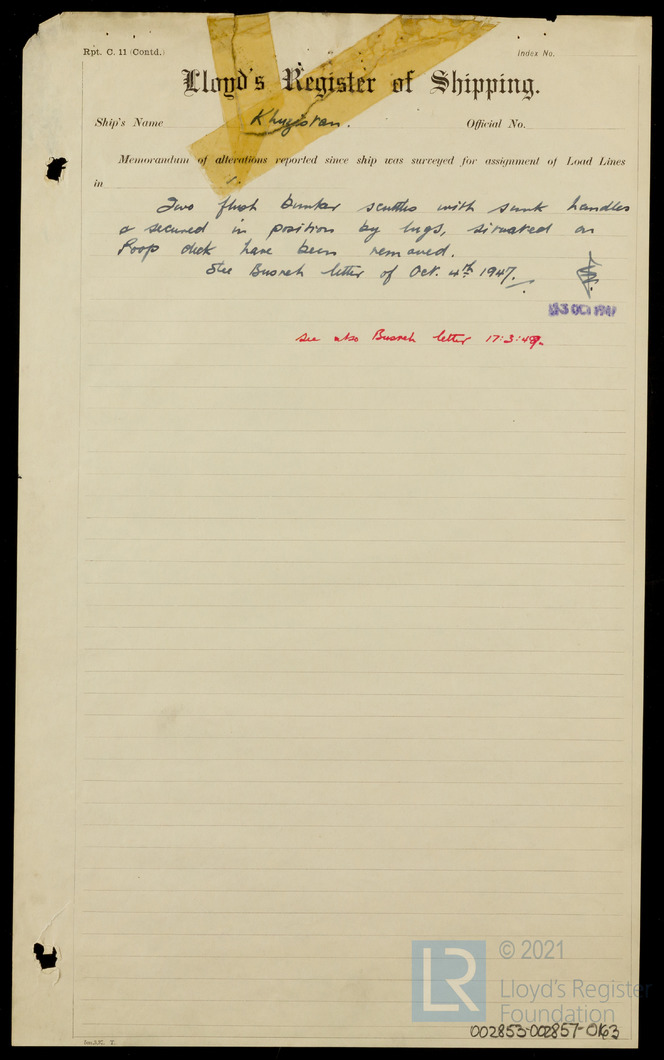 Rpt. C. 11 (Contd.)
Index No.
Lloyd's Register of Shipping.
Ship's Name Khuzistan.
Official No.
Memorandum of alterations reported since ship was surveyed for assignment of Load Lines
in
Two flush bunker scuttles with sunk handles
& secured in position by lugs, situated on
Poop deck have been removed.
See Busreh letter of Oct. 4th 1947.
OCT 1947
see also Busreh letter 17:3:49.
LR
© 2021
Lloyd's Register
Foundation
002853-002857-0163